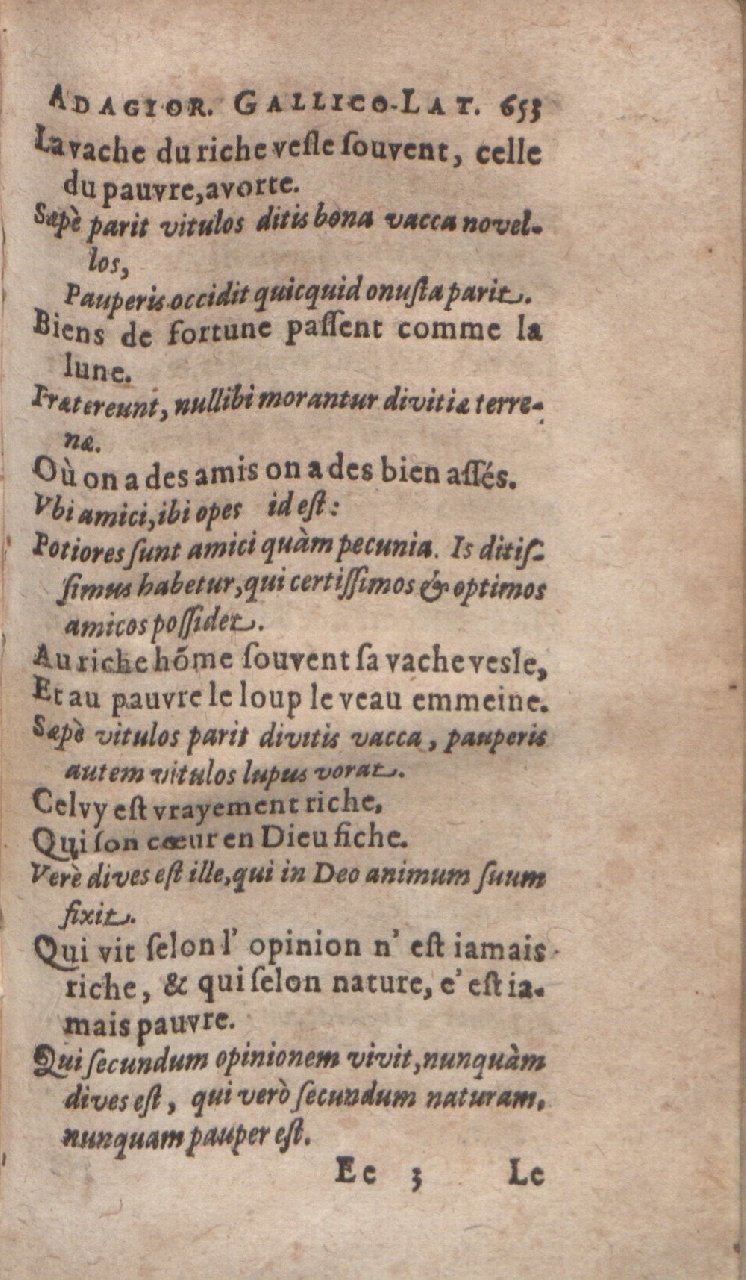 ADAGIOR. GALLICO-LAT. 653
La vache du riche vesle souvent, celle
du pauvre, avorte.
Sæpè parit vitulos ditis bona vacca novel-
los,
Pauperis occidit quicquid onusta parit.
Biens de fortune passent comme la
lune.
Prætereunt, nullibi morantur divitiæ terre-
næ.
Où on a des amis on a des bien assés.
Vbi amici, ibi opes id est:
Potiores sunt amici quàm pecunia. Is ditis-
simus habetur, qui certissimos & optimos
amicos possidet.
Au riche hõme souvent sa vache vesle,
Et au pauvre le loup le veau emmeine.
Sæpè vitulos parit divitis vacca, pauperis
autem vitulos lupus vorat.
Celvy est vrayement riche,
Qui son cœur en Dieu fiche.
Verè dives est ille, qui in Deo animum suum
fixit.
Qui vit selon l' opinion n' est iamais
riche, & qui selon nature, e' est ia-
mais pauvre.
Qui secundum opinionem vivit, nunquàm
dives est, qui verò secundum naturam,
nunquam pauper est.
Ee 3 Le